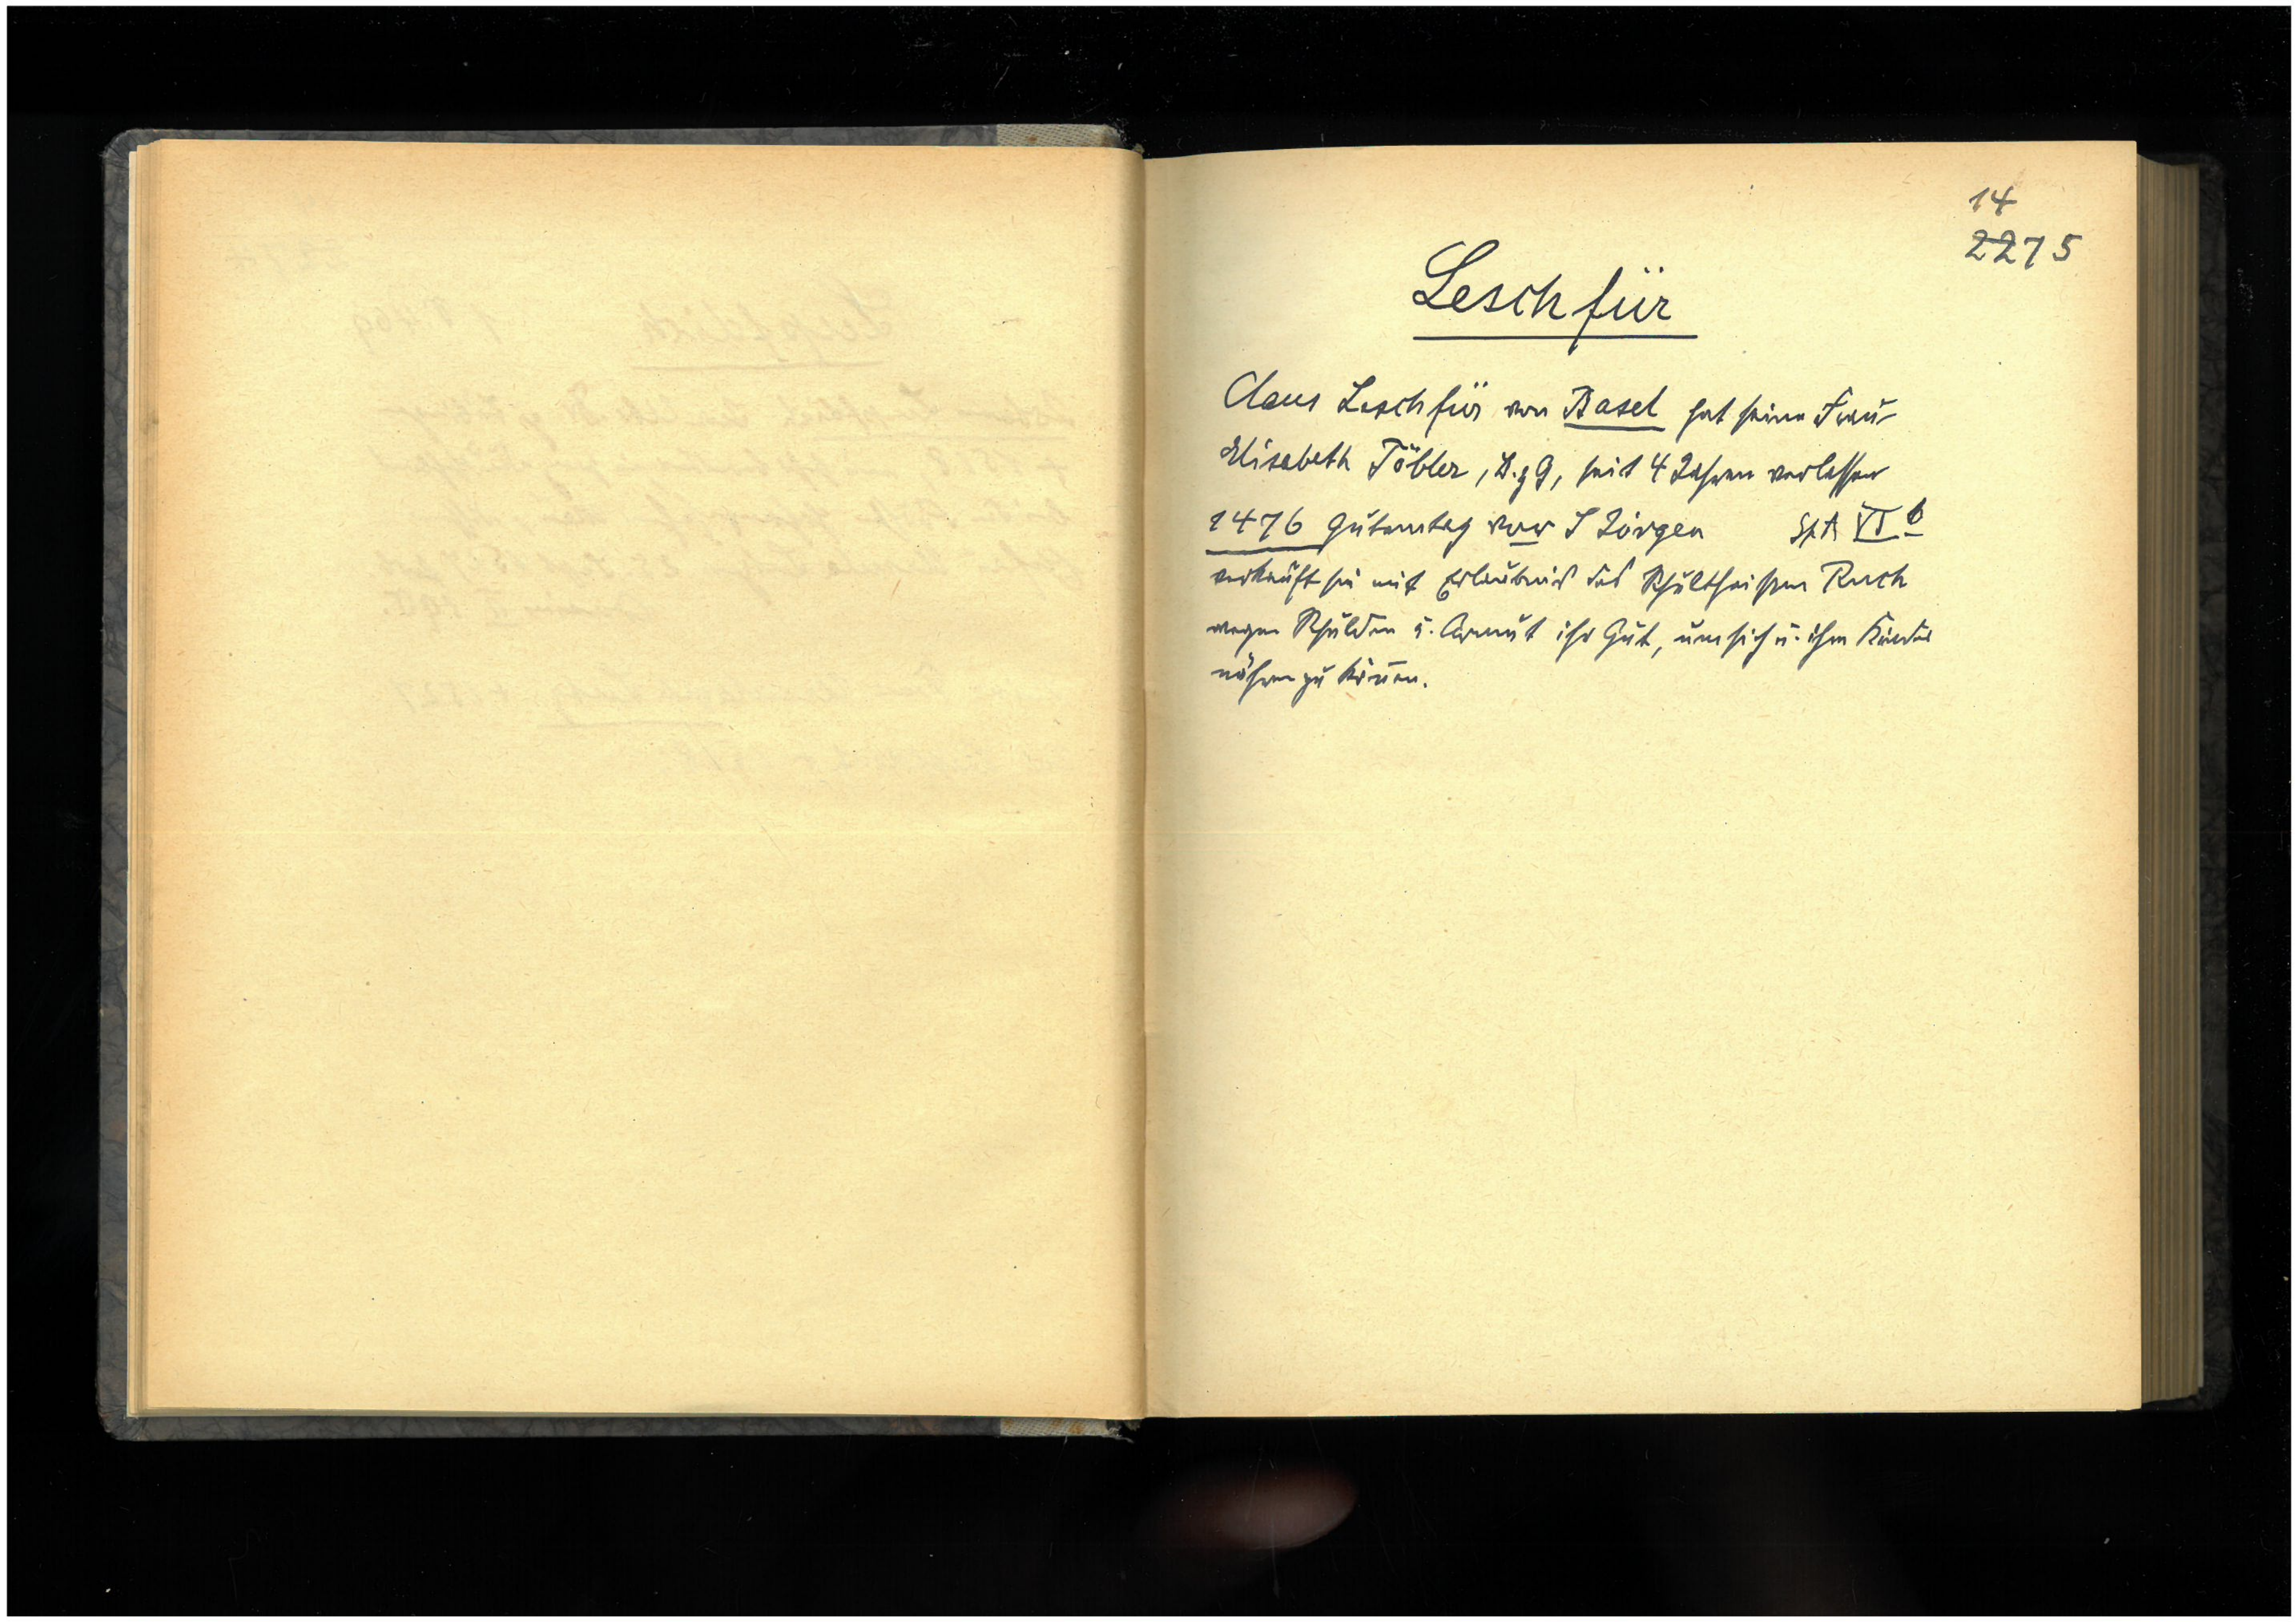 14
2275
Leschfür
Claus Leschfür von Basel hat seine Frau
Elisabeth Töbler, B.z G, seit 4 Jahren verlassen
1476 Gutemtag vor S Jörgen SpA VI b
verkauft sie mit Erlaubnis des Schultheissen Ruch
wegen Schulden u. Armut ihr Gut, um sich u. ihre Kinder
nähren zu könen.